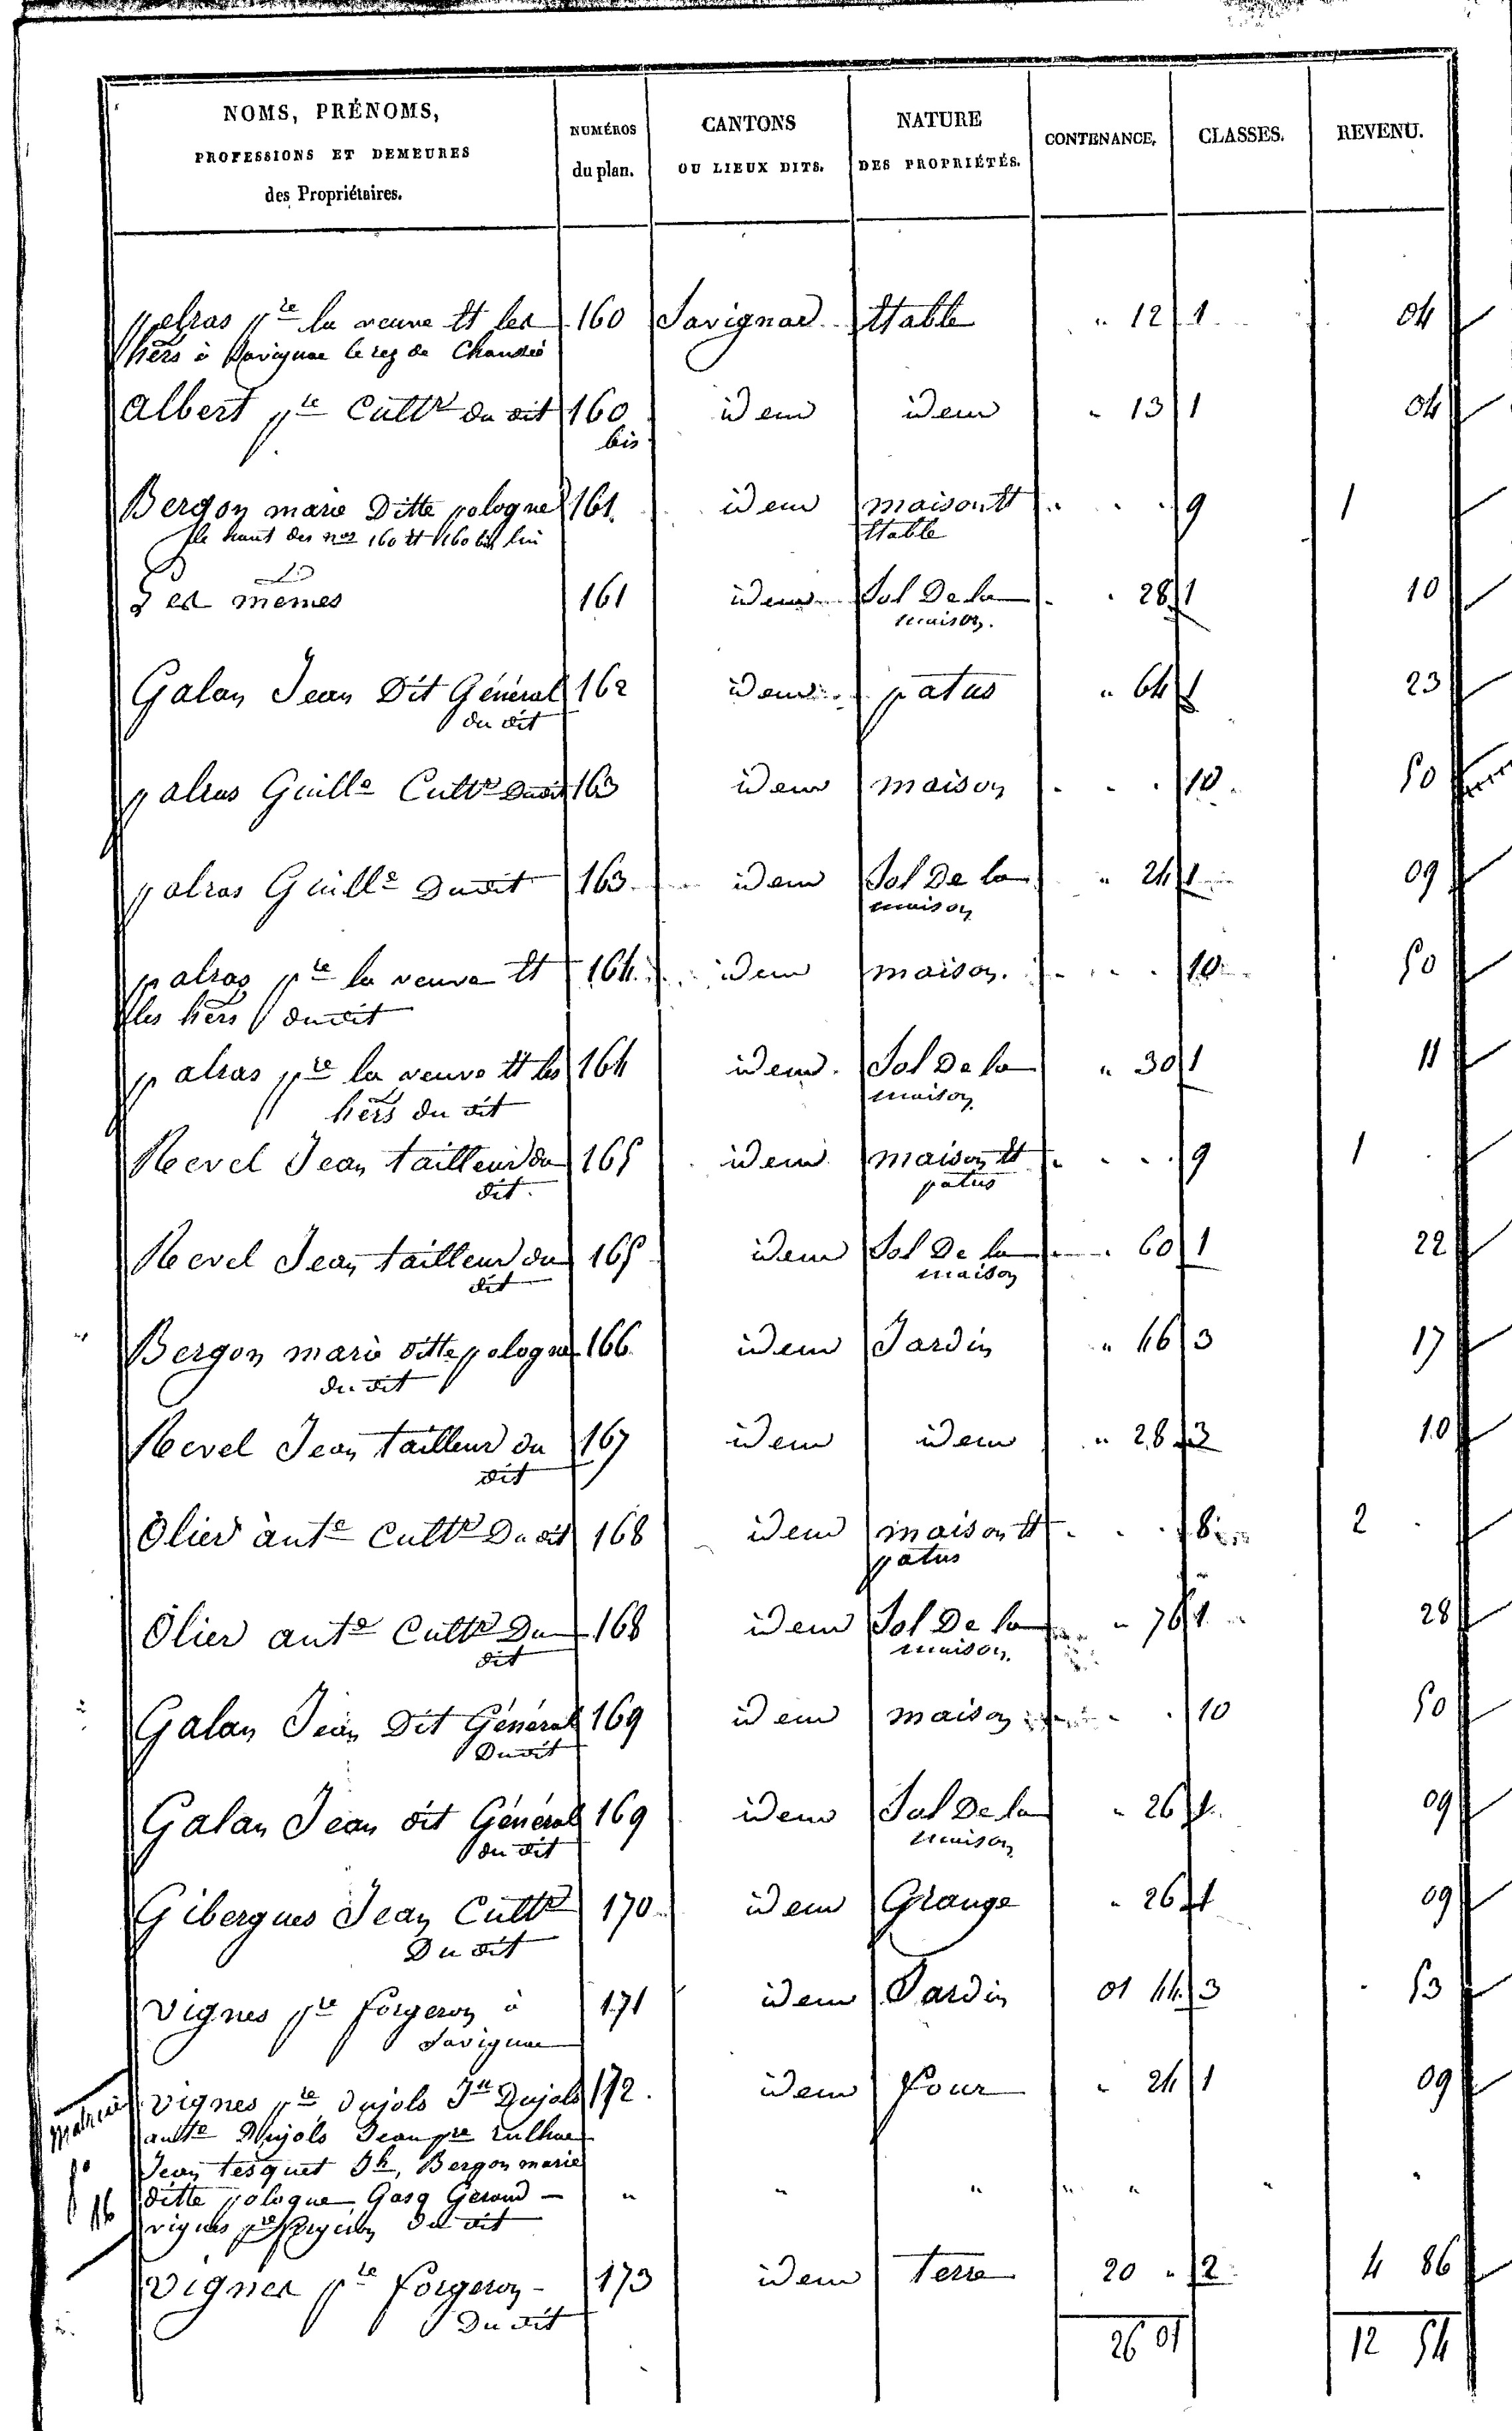 NOMS, PRÉNOMS, PROFESSIONS ET DEMEURES des Propriétaires. NUMÉROS du plan. CANTONS OU LIEUX DITS. NATURE DES PROPRIÉTÉS. CONTENANCE. CLASSES. REVENU.
pre la veuve et les 160 Savignac Etable " 12 1 04
hers à Savignac le rez de Chaussée
albert pre Cultr du dit 160 idem idem " 13 1 04
bis
Bergon marie Ditte pologne 161 idem maison et . . . 9 1
le haut des nos 160 et 160 bis etable
Les mêmes 161 idem Sol De la . . 28 1 10
maison.
Galan Jean Dit Général 162 idem patus " 64 1 23
du dit
palras Guille Cultr Dudit 163 idem maison . . . 10 50
palras Guille Dudit 163 idem Sol De la " 24 1 09
maison
palras pre la veuve et 164 idem maison. . . . 10 50
les hers dudit
palras pre la veuve et les 164 idem Sol De la " 30 1 11
hers du dit maison
Revel Jean tailleur du 165 idem maison et . . . 9 1
dit patus
Revel Jean tailleur du 165 idem Sol De la . 60 1 22
dit maison
Bergon marie ditte pologne 166 idem Jardin " 46 3 17
du dit
Revel Jean tailleur du 167 idem idem " 28 3 10
dit
Olier ante Cultr Du dit 168 idem maison et . . . 8 2
patus
Olier ante Cultr Du 168 idem Sol De la " 76 1 28
dit maison
Galan Jean Dit Général 169 idem maison . . 10 50
Dudit
Galan Jean dit Général 169 idem Sol De la " 26 1 09
du dit maison
Gibergues Jean Cultr 170 idem Grange " 26 1 09
Du dit
Vignes pre forgeron à 171 idem Jardin 01 44 3 53
Savignac
vignes pre Dujols Jn Dujols 172 idem four " 24 1 09
ante Dujols Jean pre
Jean tesquet Jh, Bergon marie
ditte pologne Gasq Geraud " " " " " " "
vignes pre forgeron du dit
Vignes pre forgeron 173 idem terre 20 " 2 4 86
Du dit
26 01 12 54